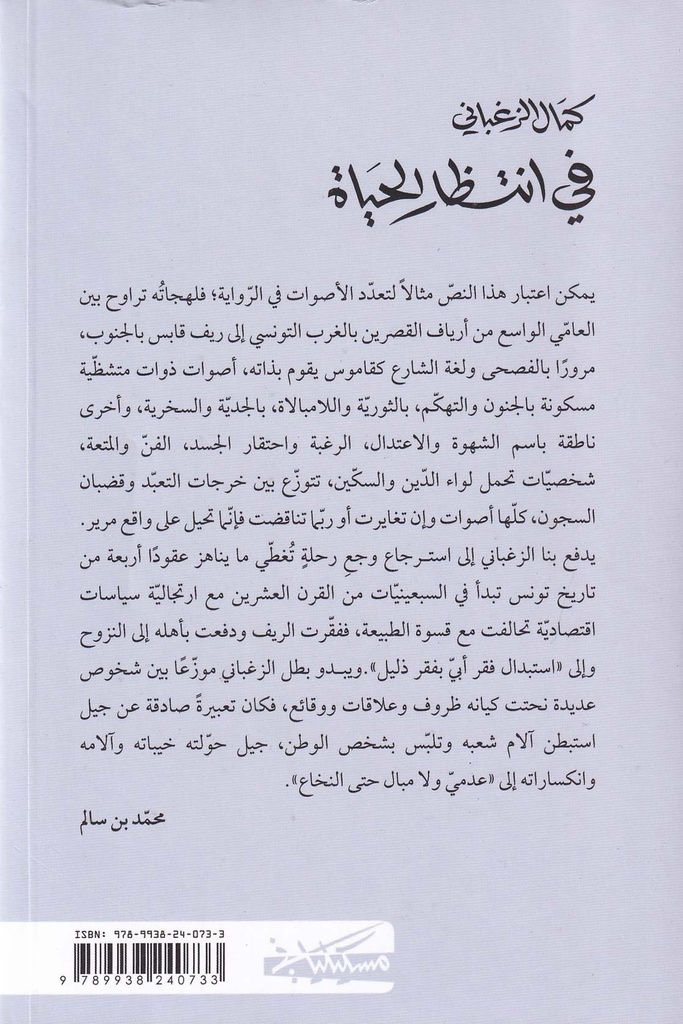 كمال الزغباني
في انتظار الحَياة
يمكن اعتبار هذا النصّ مثالاً لتعدّد الأصوات في الرّواية؛ فلهجاتُه تراوح بين
العامّي الواسع من أرياف القصرين بالغرب التونسي إلى ريف قابس بالجنوب،
مرورًا بالفصحى ولغة الشارع كقاموس يقوم بذاته، أصوات ذوات متشظّية
مسكونة بالجنون والتهكّم، بالثوريّة واللامبالاة، بالجديّة والسخرية، وأخرى
ناطقة باسم الشهوة والاعتدال، الرغبة واحتقار الجسد، الفنّ والمتعة،
شخصيّات تحمل لواء الدّين والسكّين، تتوزّع بين خرجات التعبّد وقضبان
السجون، كلّها أصوات وإن تغايرت أو ربّما تناقضت فإنّما تحيل على واقع مرير.
يدفع بنا الزغباني إلى استرجاع وجعِ رحلةٍ تُغطّي ما يناهز عقودًا أربعة من
تاريخ تونس تبدأ في السبعينيّات من القرن العشرين مع ارتجاليّة سياسات
اقتصاديّة تحالفت مع قسوة الطبيعة، ففقّرت الريف ودفعت بأهله إلى النزوح
وإلى «استبدال فقر أبيّ بفقر ذليل».ويبدو بطل الزغباني موزّعًا بين شخوص
عديدة نحتت كيانه ظروف وعلاقات ووقائع، فكان تعبيرةً صادقة عن جيل
استبطن آلام شعبه وتلبّس بشخص الوطن، جيل حوّلته خيباته وآلامه
وانكساراته إلى «عدميّ ولا مبال حتى النخاع».
محمّد بن سالم
ISBN: 978-9938-24-073-3
9 789938 240733
مسكيلياني